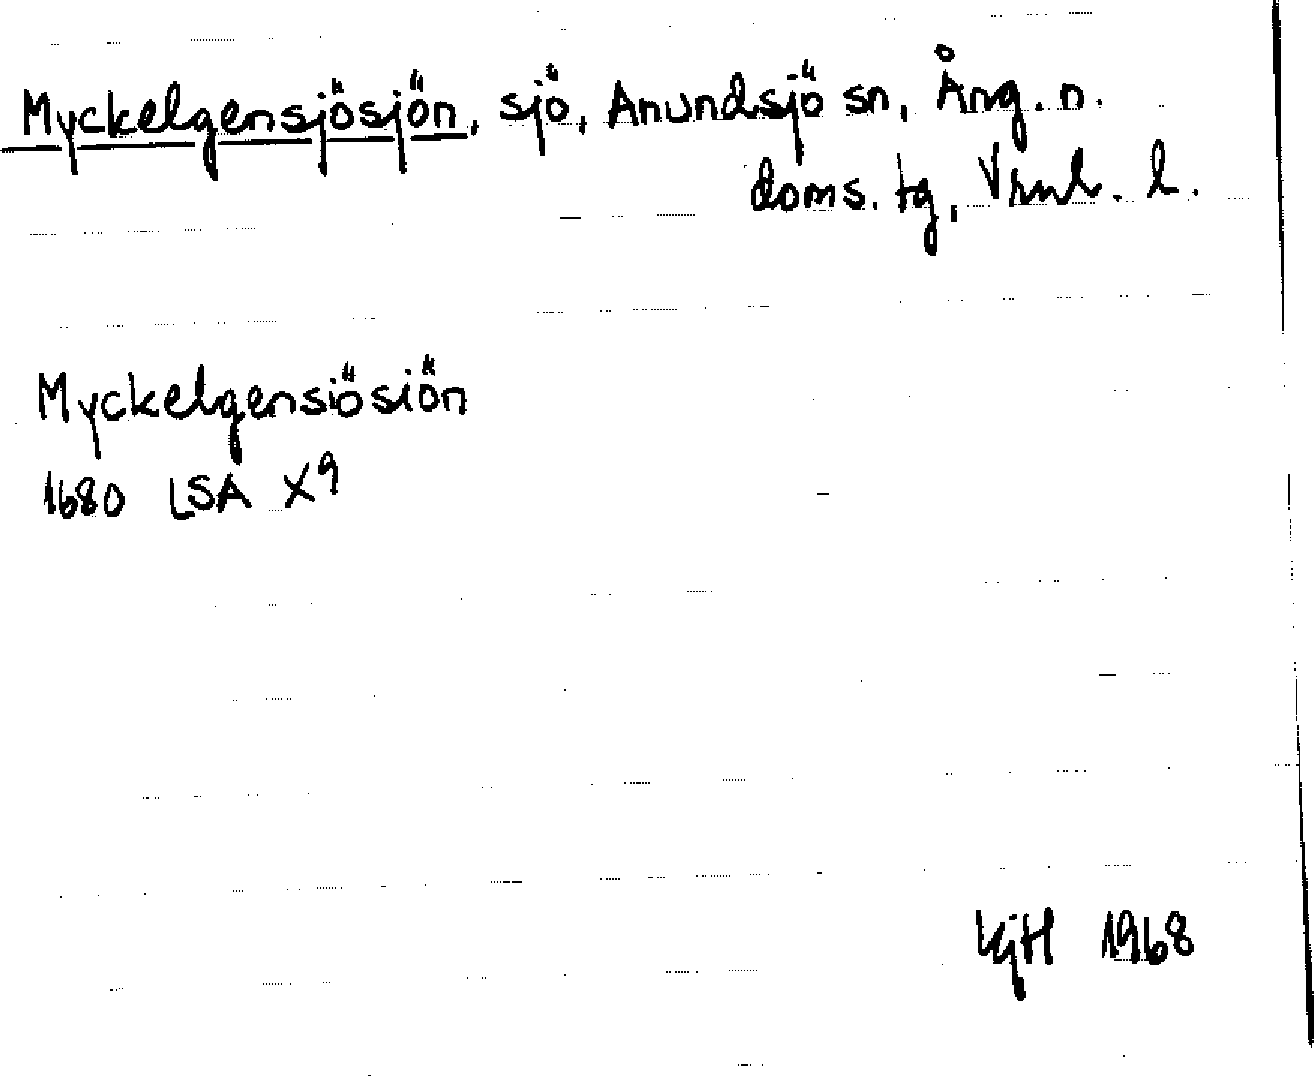 Myckelgensjösjön, sjö, Anundsjö sn, Ång. n.
doms. tg, Vrnl. l.
Myckelgensiösiön
1680 LSA X9
KjH 1968